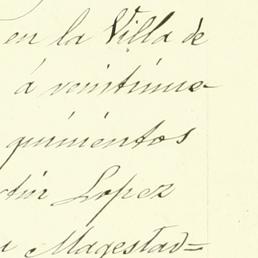 en la Villa de
á veintinue-
quinientos
Lopez
Magestad=